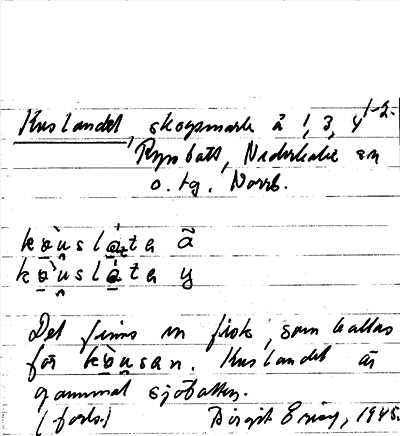 Kuslandet, skogsmark å 1, 3, 4 1-2.
Ryssbält, Nederkalix sn
o. tg. Norrb.
kɷ̀u̯slá̱ta ā
kɷ̀u̯slá̱ta y
Det finns en fisk, som kallas
för kɷ̀usan. Kuslandet är
gammal sjöbotten.
(forts.) Birgit 1945.